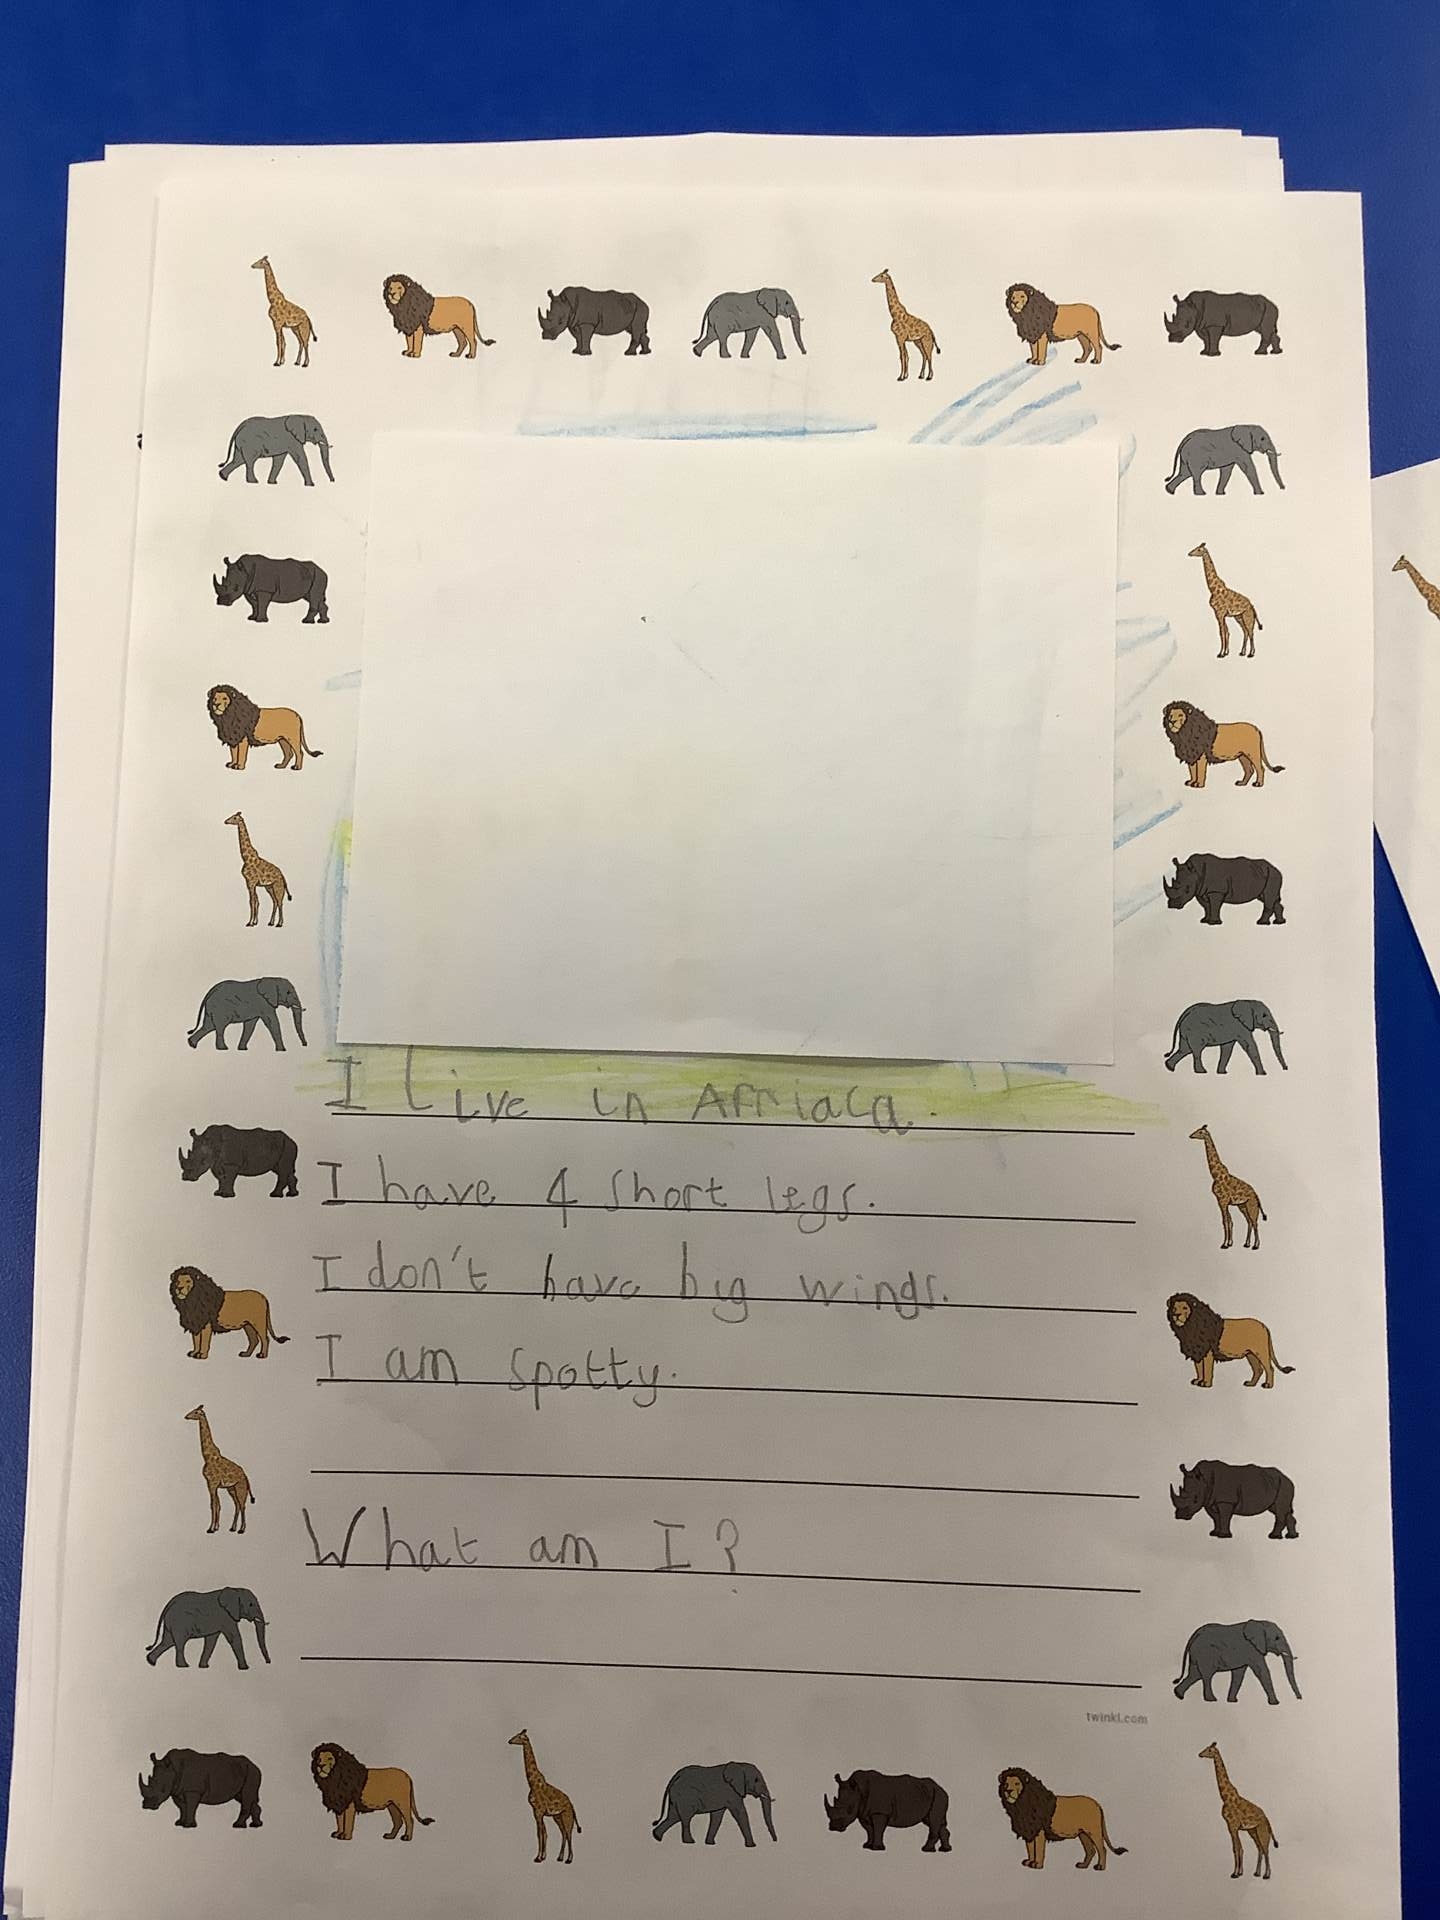 I live in Afriaca.
I have 4 short legs.
I don't have big wings.
I am spotty.
What am I?
twinkl.com